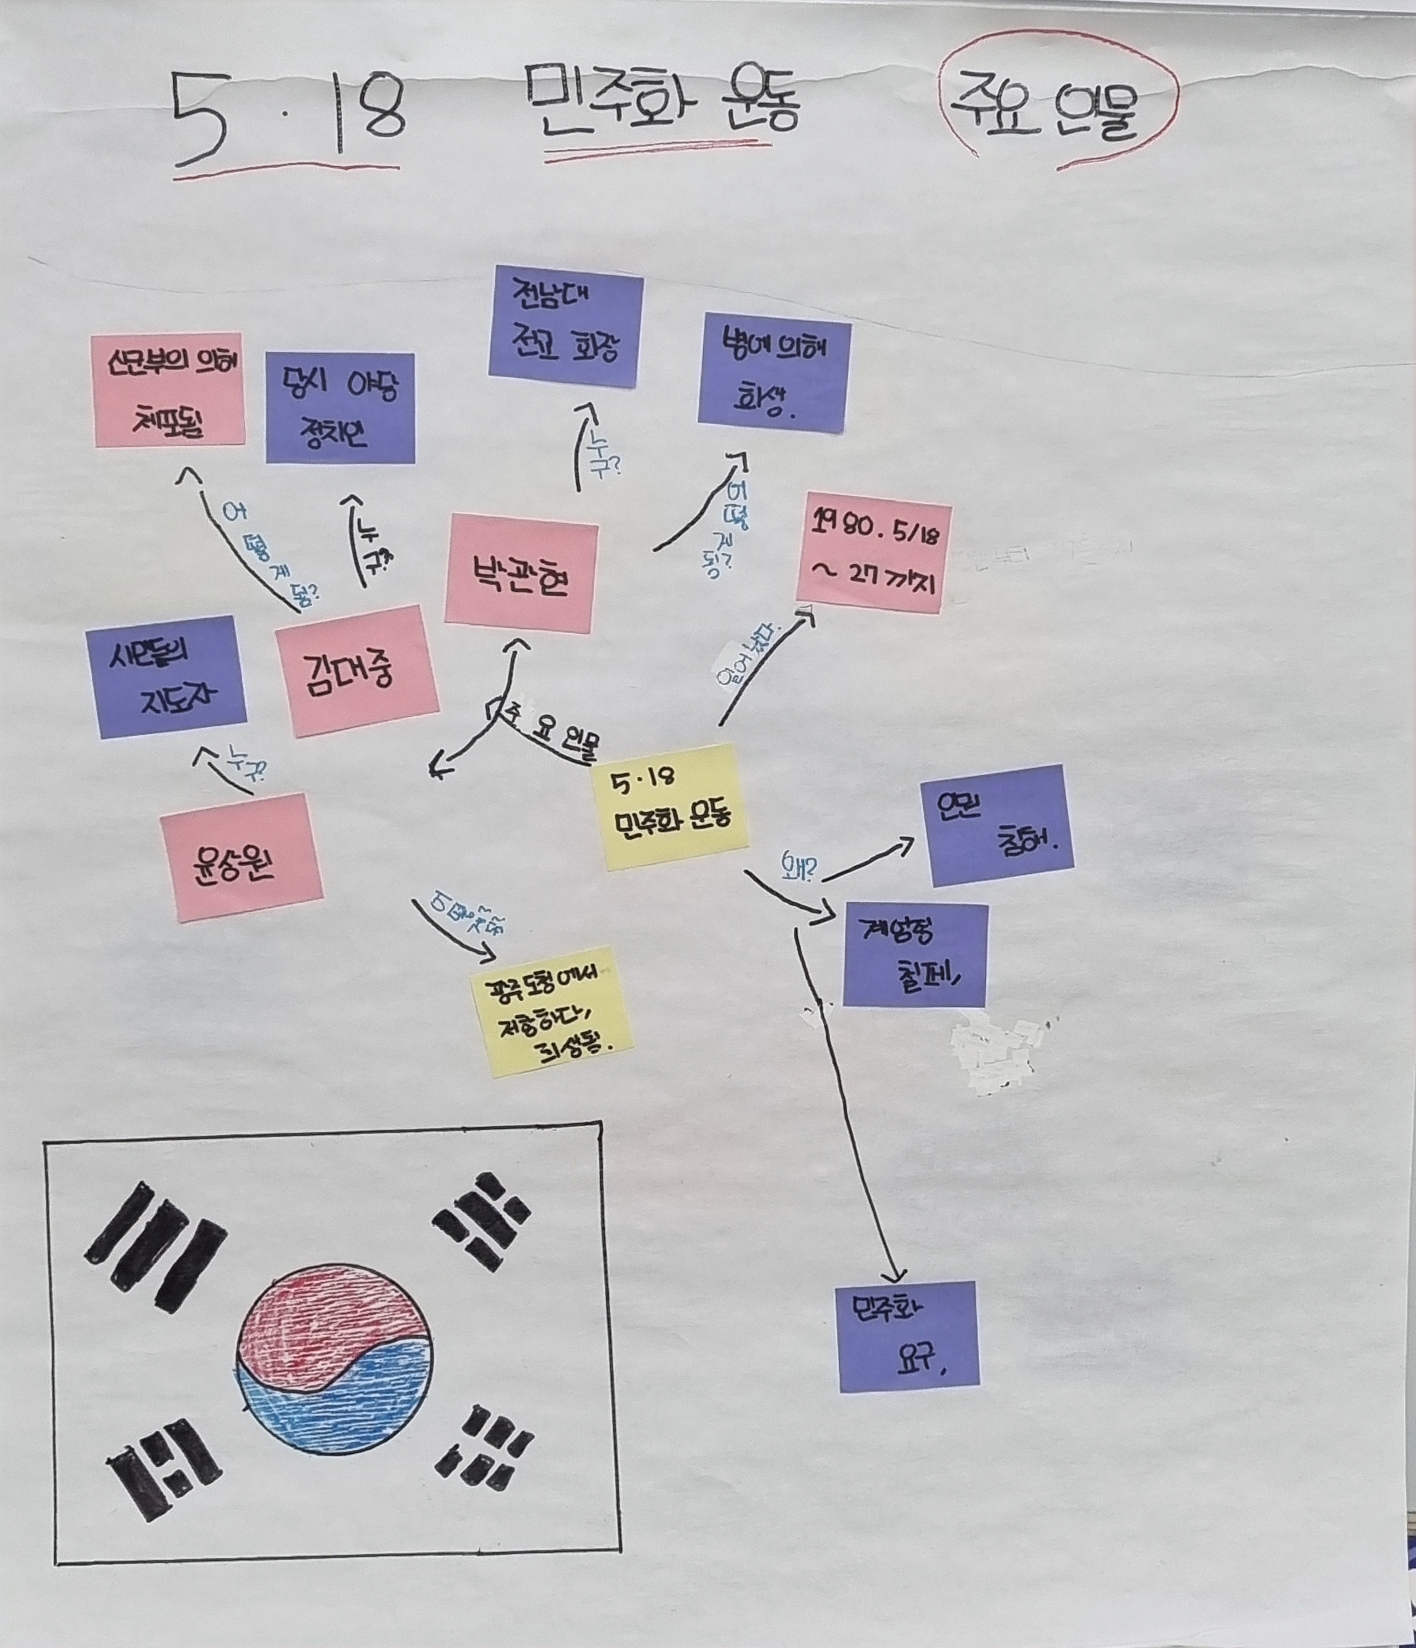 5.18 민주화 운동 주요 인물
전남대
전교 회장
병에 의해
희생.
신군부의 의해
체포됨
당시 야당
정치인
누구?
어떻게 됨?
어떻게 됨?
누구?
박관현
1980. 5/18
~ 27까지
일어났다.
시민들의
지도자
김대중
주요 인물
누구?
5·18
민주화 운동
윤상원
왜?
인권
침해.
계엄령
철폐,
광주 도청에서
저항하다,
희생됨.
민주화
요구,